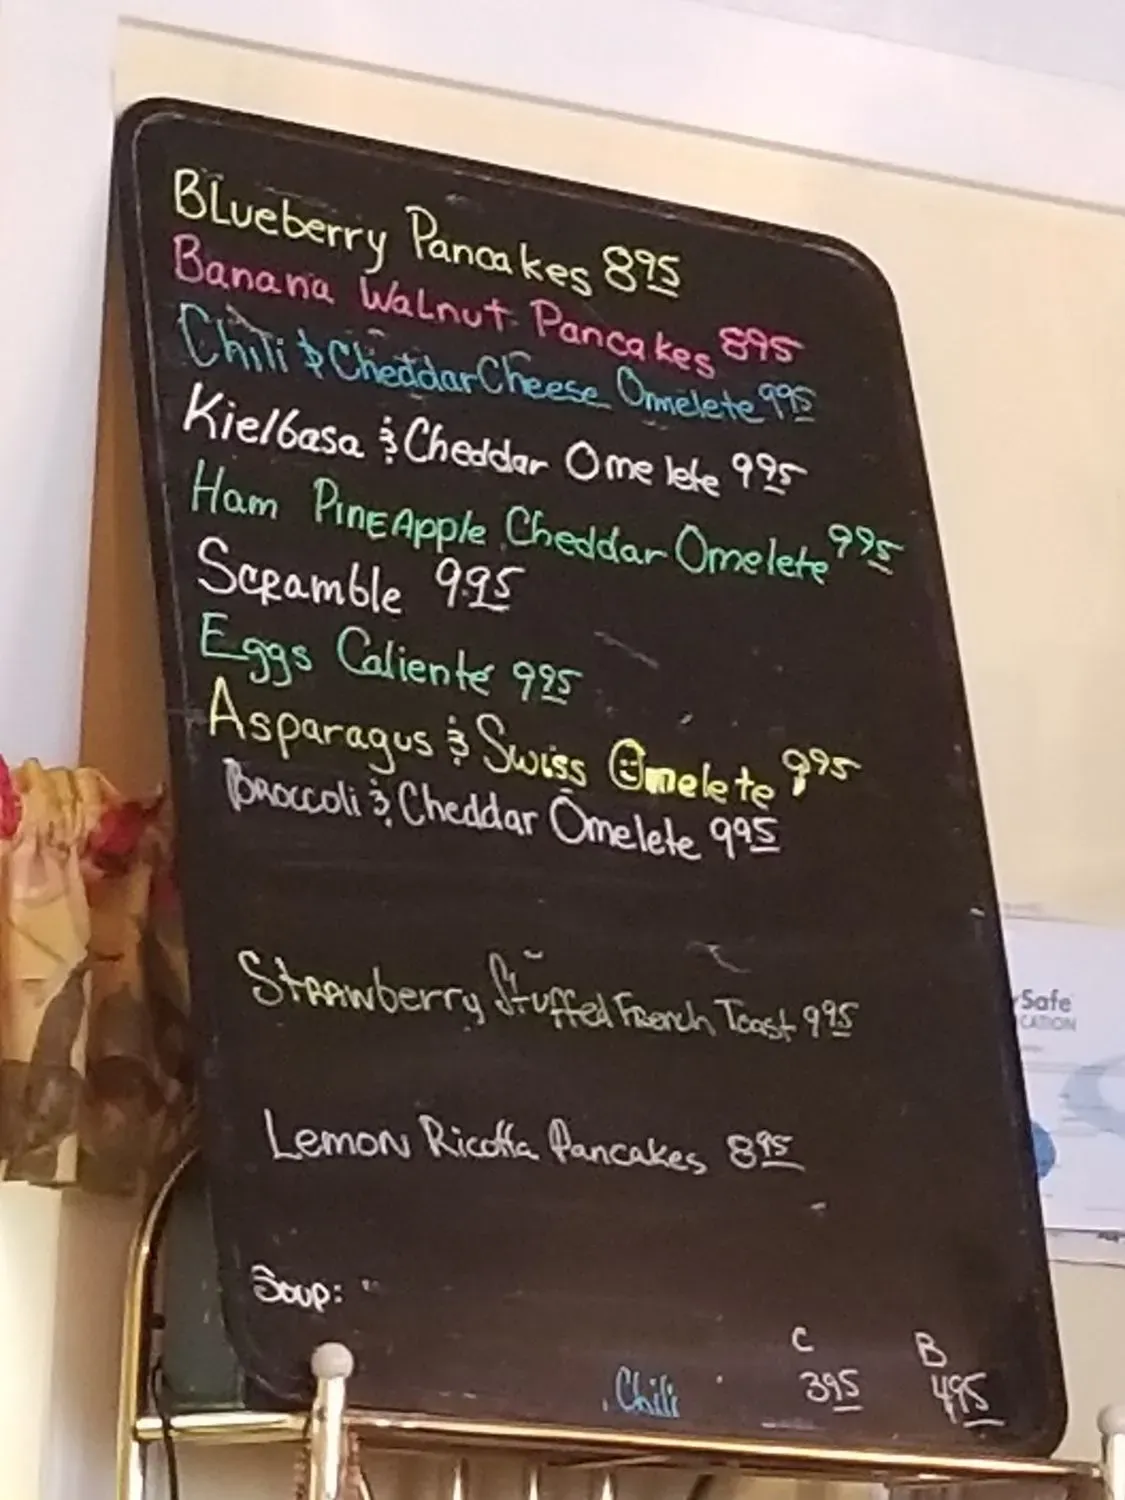 BLueberry Pancakes 8 95
Banana WaLnut Pancakes 8 95
Chili & Cheddar Cheese Omelete 9 95
Kielbasa & Cheddar Omelete 9 95
Ham PinEApple Cheddar Omelete 9 95
Scramble 9.95
Eggs Caliente 9 95
Asparagus & Swiss Omelete 9 95
Broccoli & Cheddar Omelete 9 95
Strawberry Stuffed French Toast 9 95
Lemon Ricotta Pancakes 8 95
Soup:
C B
Chili 3 95 4 95
Safe
CATION